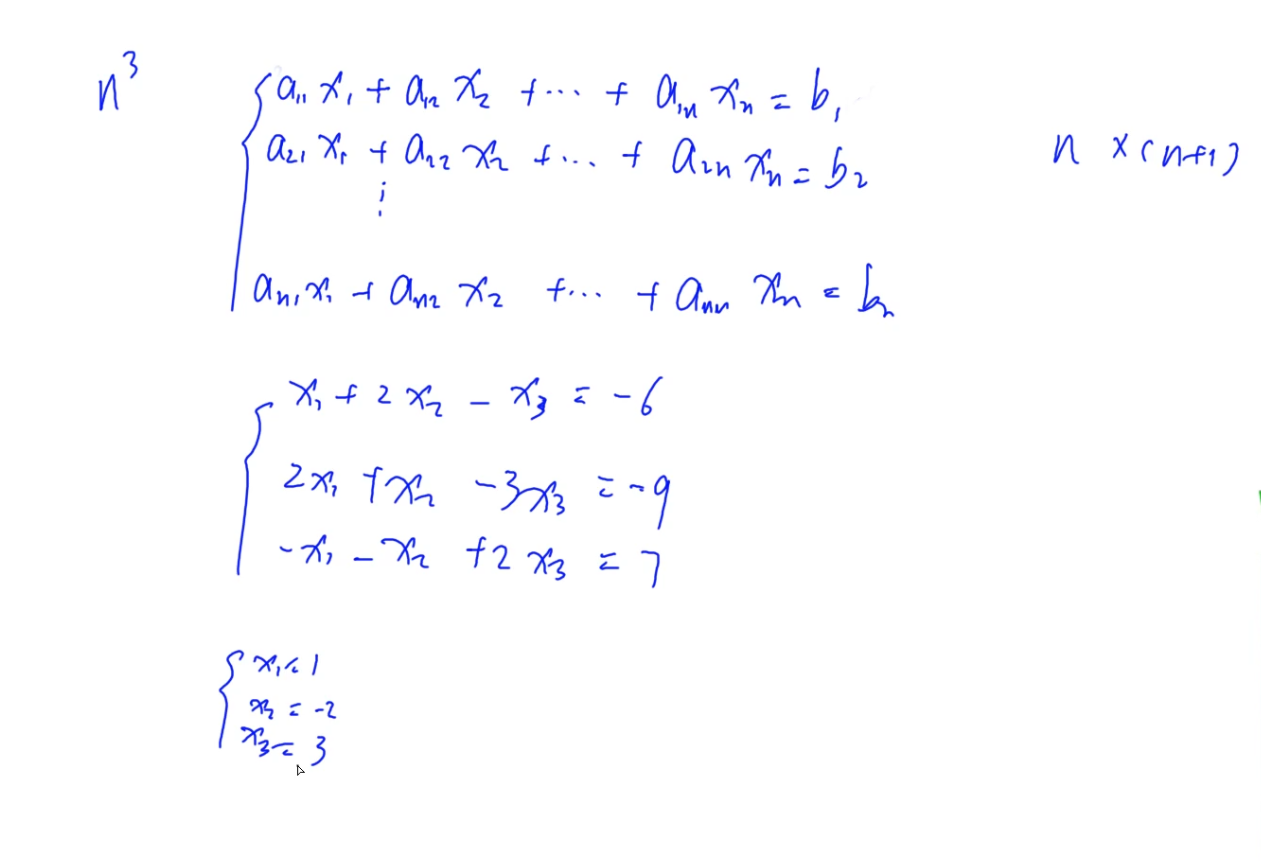 n³
a₁₁ x₁ + a₁₂ x₂ + ... + a₁ₙ xₙ = b₁
a₂₁ x₁ + a₂₂ x₂ + ... + a₂ₙ xₙ = b₂
n × (n+1)
⋮
aₙ₁ x₁ + aₙ₂ x₂ + ... + aₙₙ xₙ = bₙ
x₁ + 2 x₂ - x₃ = -6
2x₁ + x₂ - 3x₃ = -9
-x₁ - x₂ + 2 x₃ = 7
x₁ = 1
x₂ = -2
x₃ = 3